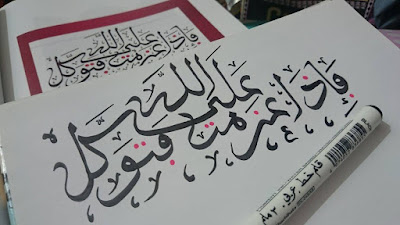 فإذا عزمت فتوكل على الله
فإذا عزمت فتوكل على الله
قلم خط عربي